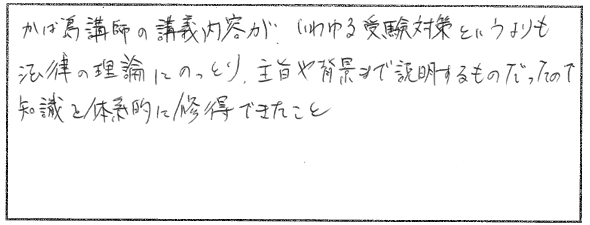 かば島講師の講義内容が、いわゆる受験対策というよりも
法律の理論にのっとり、主旨や背景まで説明するものだったので
知識を体系的に修得できたこと